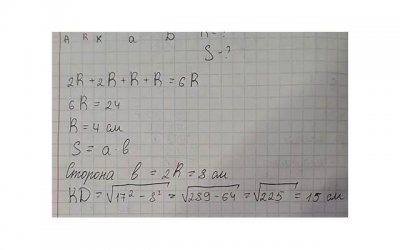 A R K a D
S - ?
2R + 2R + R + R = 6R
6R = 24
R = 4 см
S = a · в
Сторона в = 2R = 8 см
KD = √17² - 8² = √289 - 64 = √225 = 15 см